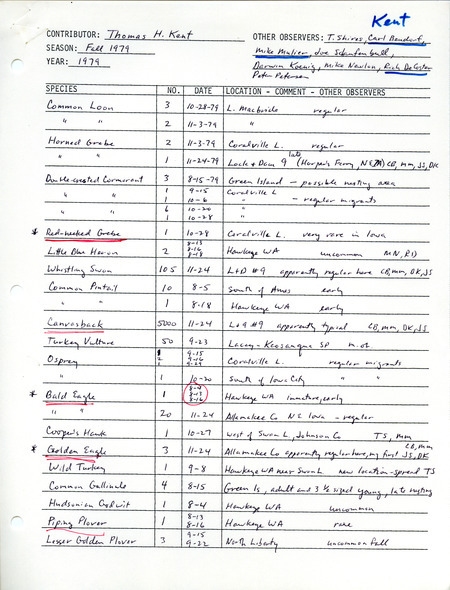 Kent
CONTRIBUTOR: Thomas H. Kent
OTHER OBSERVERS: T. Shires, Carl Bendorf,
SEASON: Fall 1979
Mike Mulier, Joe Schaufenbuel,
YEAR: 1979
Darwin Koenig, Mike Newlon, Rich DeCoster
Peter Petersen
SPECIES NO. DATE LOCATION - COMMENT - OTHER OBSERVERS
Common Loon 3 10-28-79 L. Macbride regular
" " 2 11-3-79 "
Horned Grebe 2 11-3-79 Coralville L. regular
" " 1 11-24-79 Lock & Dam 9 late (Harpers Ferry, ) CB, MM, JS, DK
Double-crested Cormorant 3 8-15-79 Green Island - possible nesting area
" " 1 9-15 Coralville L
1 10-6 " - regular migrants
" 6 10-20 "
1 10-28 "
* Red-necked Grebe 1 10-28 Coralville L. very rare in Iowa
Little Blue Heron 2 8-13 8-16 8-18 Hawkeye WA uncommon MN, RD
Whistling Swan 105 11-24 L+D #9 apparently regular here CB, MM, DK, JS
Common Pintail 10 8-5 South of Ames early
" " 1 8-18 Hawkeye WA early
Canvasback 5000 11-24 L+D #9 apparently typical CB, MM, DK, JS
Turkey Vulture 50 9-23 Lacey-Keosauqua SP
Osprey 1 9-15
2 9-16 Coralville L. regular migrants
1 9-29
1 10-20 South of Iowa City " "
* Bald Eagle 1 8-4 8-13 8-16 Hawkeye WA immature, early
" " 20 11-24 Allamakee Co NE Iowa - regular
Cooper's Hawk 1 10-27 West of Swan L, Johnson Co TS, MM
* Golden Eagle 3 11-24 Allamakee Co apparently regular here, my first CB, MM, JS, DK
Wild Turkey 1 9-8 Hawkeye WA near Swan L. new location - spread TS
Common Gallinule 4 8-15 Green Is, adult and 3 ½ sized young, late nesting
Hudsonian Godwit 1 8-4 Hawkeye WA uncommon
Piping Plover 1 8-13 8-16 Hawkeye WA rare
Lesser Golden Plover 3 9-15 9-22 North Liberty uncommon fall